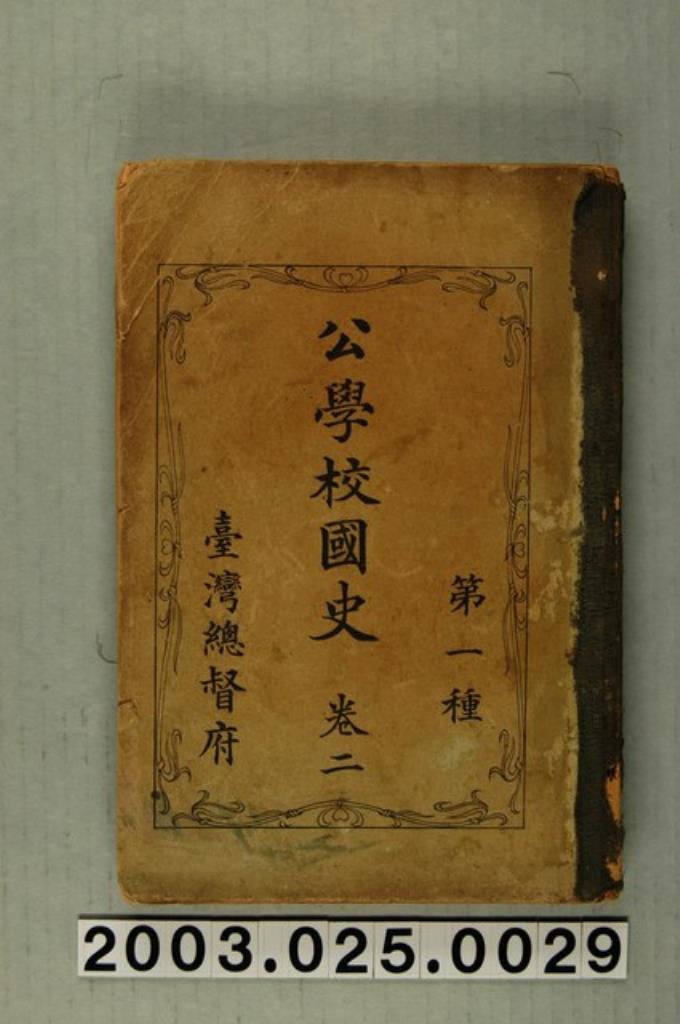 第一種
公學校國史 卷二
臺灣總督府
2003.025.0029